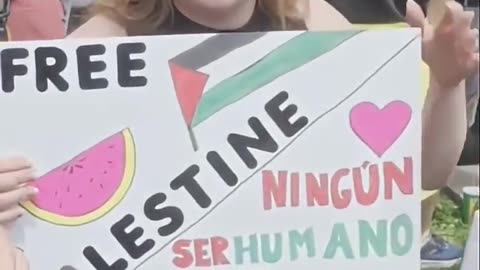 FREE
PALESTINE
NINGÚN
SER HUMANO